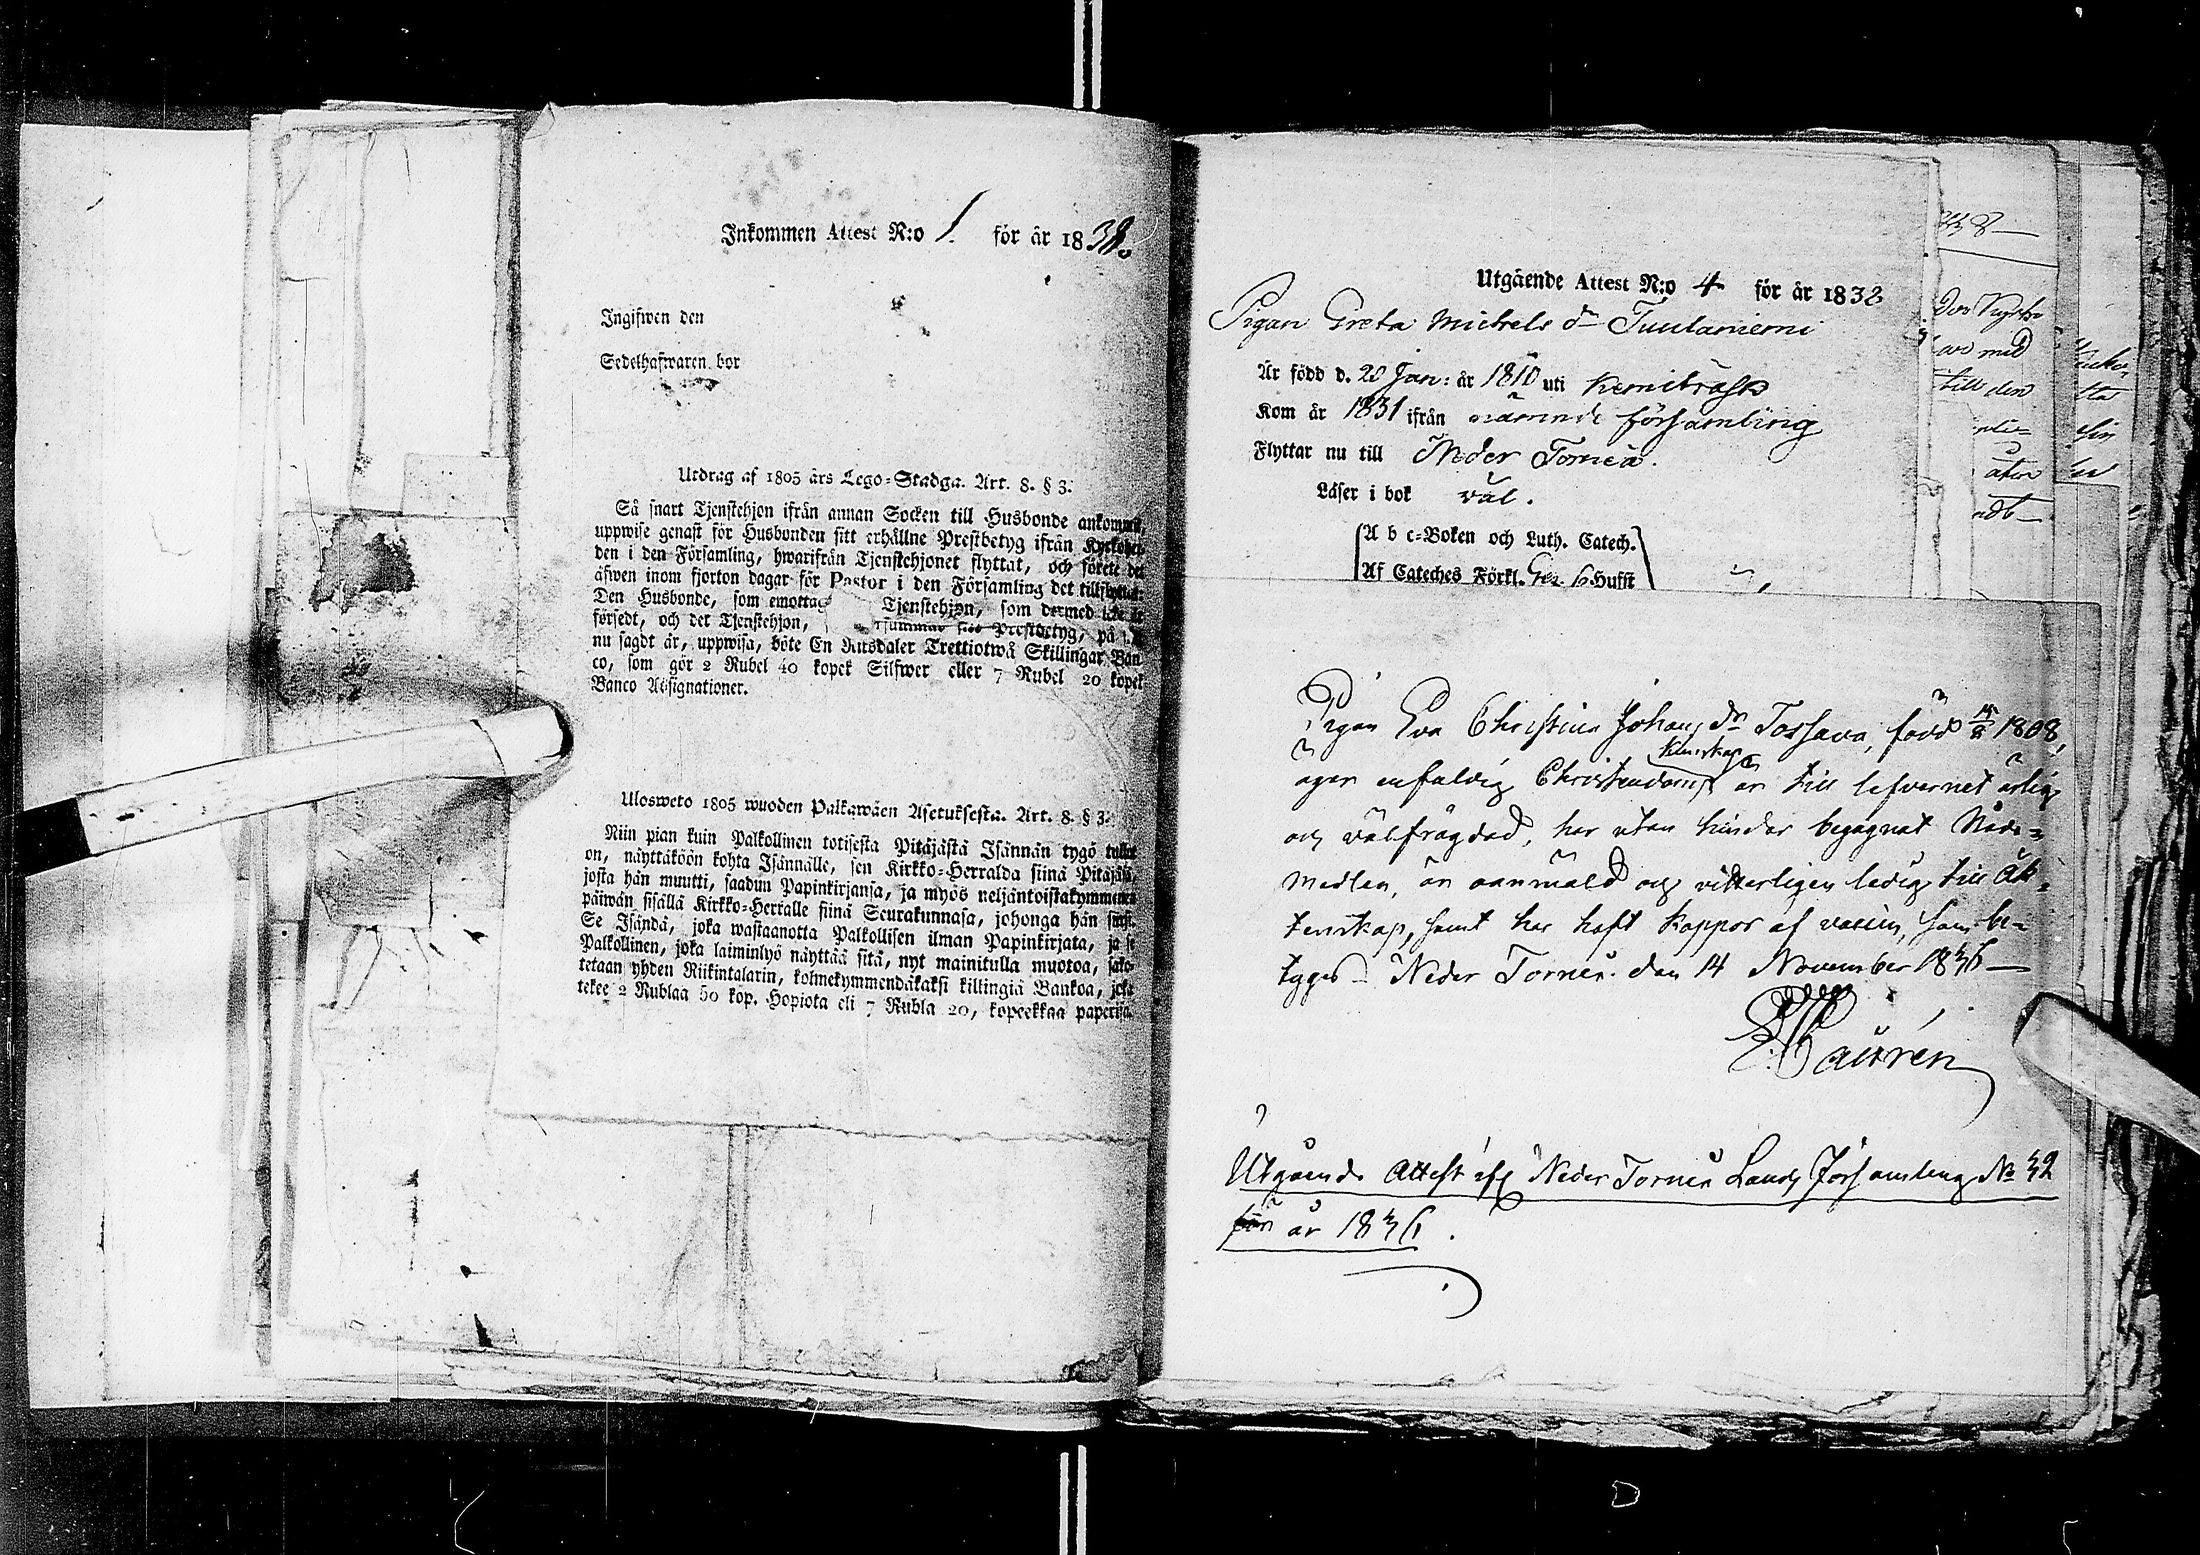 Inkommen Attest N:o 1. för år 1838.
Ingifwen den
Sedelhafwaren bor
Utdrag af 1805 års Lego-Stadga. Art. 8. § 3.
Så snart Tjenstehjon ifrån annan Socken till Husbonde ankommit,
uppwise genast för Husbonden sitt erhållne Prestbetyg ifrån
den i den Församling, hwarifrån Tjenstehjonet flyttat, och förete det
äfwen inom fjorton dagar för Pastor i den Församling det
Den Husbonde, som emottag Tjenstehjon, som dermed icke är
försedt, och det Tjenstehjon, Prestbetyg, på
nu sagdt är, uppwisa, böte En Riksdaler Trettiotwå Skillingar Ban
co, som gör 2 Rubel 40 kopek Silfwer eller 7 Rubel 20 kopek
Banco Assignationer.
Ulosweto 1805 wuoden Palkawäen Asetuksesta. Art. 8. § 3.
Niin pian kuin Palkollinen totisesta Pitäjästä Isännän tygö tullut
on, näyttäköön kohta Isännälle, sen Kirkko-Herralda siinä Pitäjäsä,
josta hän muutti, saadun Papinkirjansa, ja myös neljäntoistakymmenen
päiwän sisällä Kirkko-Herralle siinä Seurakunnasa, johonga hän
Se Isändä, joka wastaanotta Palkollisen ilman Papinkirjata, ja se
Palkollinen, joka laiminlyö näyttää sitä, nyt mainitulla muotoa, sako-
tetaan yhden Riikintalarin, kolmekymmendäkaksi killingiä Bankoa, joka
tekee 2 Rublaa 50 kop. Hopiota eli 7 Rubla 20, kopeekkaa paperisa.
Utgående Attest N:o 4 för år 1832
Pigan Greta Michels dr Tuulaniemi
Är född d. 20 Jan: år 1810 uti Kemiträsk
Kom år 1831 ifrån nämnde församling
Flyttar nu till Neder Torneå.
Läser i bok väl.
A b c-Boken och Luth. Catech.
Af Cateches Förkl. Hufst
Pigan Eva Christina Johans dr Tossava, född 1808,
äger enfaldig Christendoms kunskap är till lefvernet ärlig
och välfrägdad, har utan hinder begagnat Nåde=
medlen, är oanmäld och vitterligen ledig till Äk=
tenskap, samt har haft koppor af vaccin, som be=
tygas. Neder Torneå den 14 November 1836
Waurén
Utgående Attest af Neder Torneå Lands Församling No 32
för år 1836.